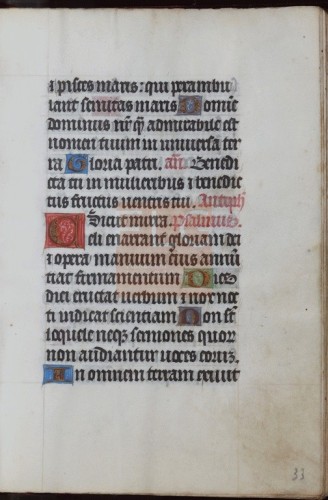 & pisces maris: qui perambu
lant semitas maris Domine
dominus nr̄ q̄ admirabile est
nomen tuum in universa ter
ra Gloria patri. añ. Benedi
cta tu in mulieribus & benedic
tus fructus ventris tui. Antiph
Sicut mirra. Psalmus.
Celi enarrant gloriam dei
& opera manuum eius annū
tiat firmamentum Dies
diei eructat verbum & nox noc
ti indicat scientiam Non st̄
loquele neqȝ sermones quor
non audiantur voces eoruȝ.
In omnem terram exivit
33